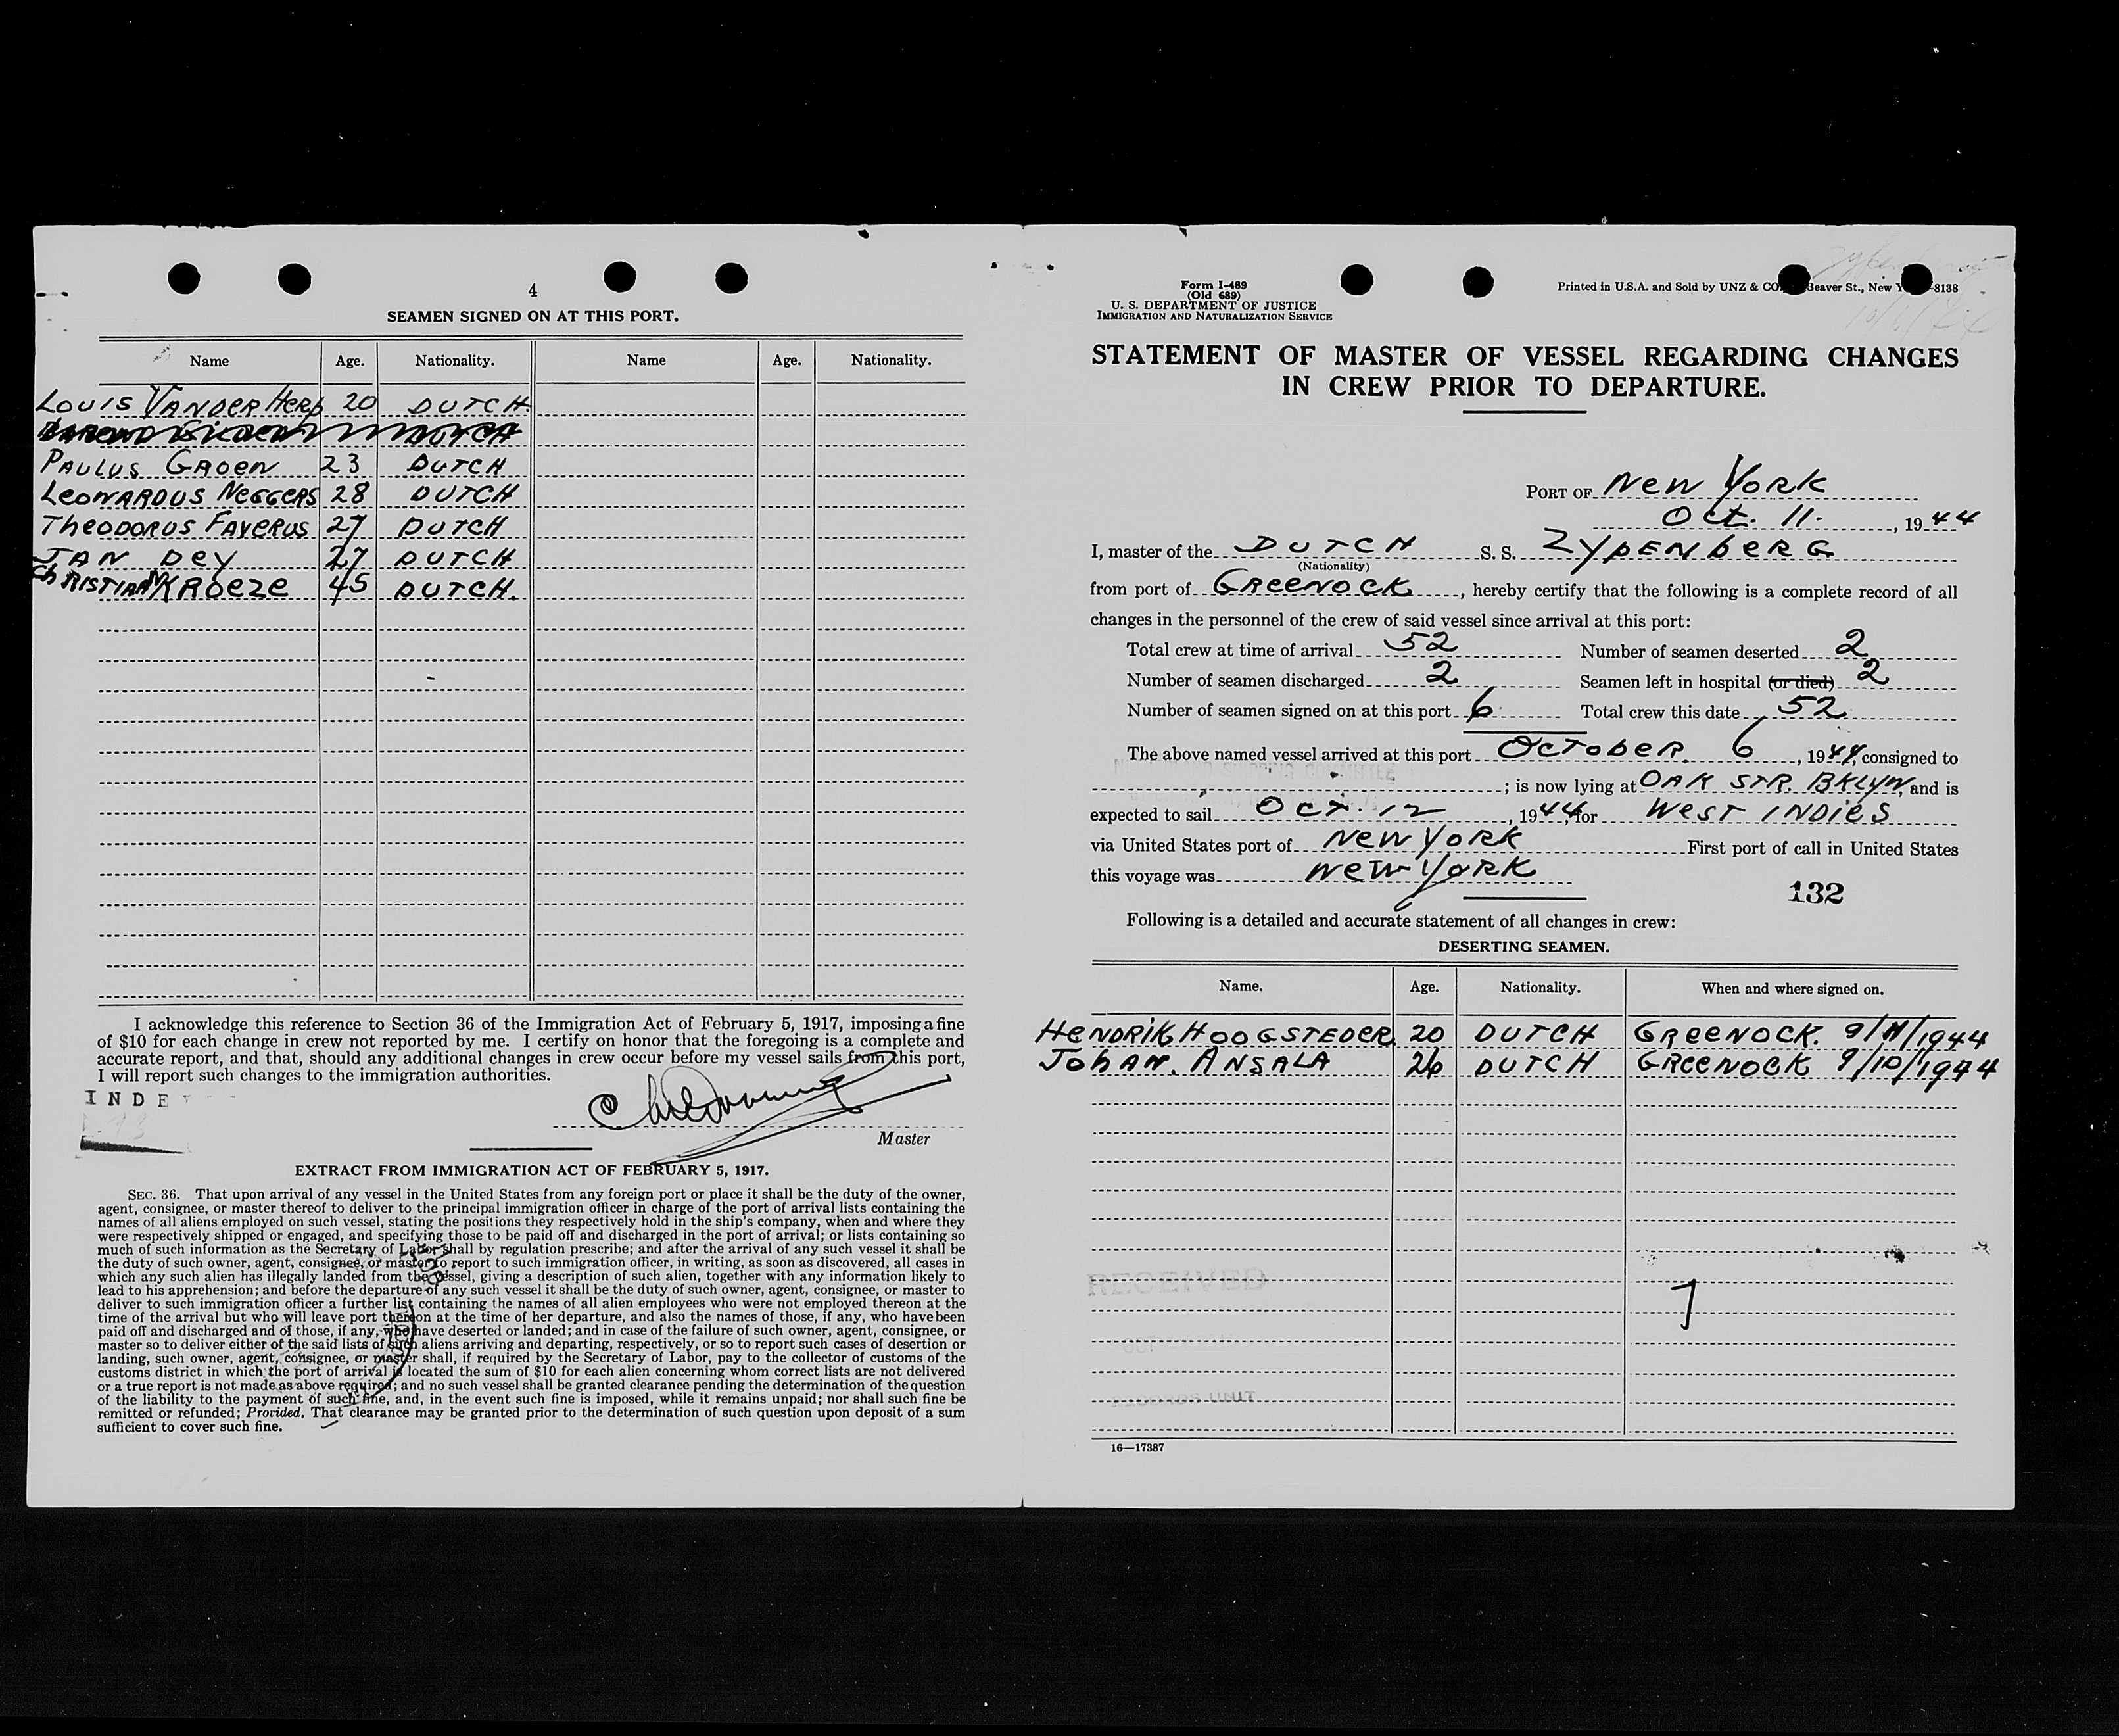 4
SEAMEN SIGNED ON AT THIS PORT.
Name Age. Nationality. Name Age. Nationality.
Louis Vander Herp 20 DUTCH
Paulus Groen 23 DUTCH
Leonardus Neggers 28 DUTCH
Theodorus Faverus 27 DUTCH
Jan Dey 27 DUTCH
Christiaan Kroeze 45 DUTCH.
I acknowledge this reference to Section 36 of the Immigration Act of February 5, 1917, imposing a fine
of $10 for each change in crew not reported by me. I certify on honor that the foregoing is a complete and
accurate report, and that, should any additional changes in crew occur before my vessel sails from this port,
I will report such changes to the immigration authorities.
INDE
Master
EXTRACT FROM IMMIGRATION ACT OF FEBRUARY 5, 1917.
SEC. 36. That upon arrival of any vessel in the United States from any foreign port or place it shall be the duty of the owner,
agent, consignee, or master thereof to deliver to the principal immigration officer in charge of the port of arrival lists containing the
names of all aliens employed on such vessel, stating the positions they respectively hold in the ship's company, when and where they
were respectively shipped or engaged, and specifying those to be paid off and discharged in the port of arrival; or lists containing so
much of such information as the Secretary of Labor shall by regulation prescribe; and after the arrival of any such vessel it shall be
the duty of such owner, agent, consignee, or master to report to such immigration officer, in writing, as soon as discovered, all cases in
which any such alien has illegally landed from the vessel, giving a description of such alien, together with any information likely to
lead to his apprehension; and before the departure of any such vessel it shall be the duty of such owner, agent, consignee, or master to
deliver to such immigration officer a further list containing the names of all alien employees who were not employed thereon at the
time of the arrival but who will leave port thereon at the time of her departure, and also the names of those, if any, who have been
paid off and discharged and of those, if any, who have deserted or landed; and in case of the failure of such owner, agent, consignee, or
master so to deliver either of the said lists of such aliens arriving and departing, respectively, or so to report such cases of desertion or
landing, such owner, agent, consignee, or master shall, if required by the Secretary of Labor, pay to the collector of customs of the
customs district in which the port of arrival is located the sum of $10 for each alien concerning whom correct lists are not delivered
or a true report is not made as above required; and no such vessel shall be granted clearance pending the determination of the question
of the liability to the payment of such fine, and, in the event such fine is imposed, while it remains unpaid; nor shall such fine be
remitted or refunded; Provided, That clearance may be granted prior to the determination of such question upon deposit of a sum
sufficient to cover such fine.
Form I-489
(Old 689)
U. S. DEPARTMENT OF JUSTICE
IMMIGRATION AND NATURALIZATION SERVICE
Printed in U.S.A. and Sold by UNZ & CO Beaver St., New Y -8138
STATEMENT OF MASTER OF VESSEL REGARDING CHANGES
IN CREW PRIOR TO DEPARTURE.
PORT OF New York
Oct. 11. , 1944
I, master of the DUTCH S. S. ZYPENBERG
(Nationality)
from port of GREENOCK , hereby certify that the following is a complete record of all
changes in the personnel of the crew of said vessel since arrival at this port:
Total crew at time of arrival 52 Number of seamen deserted 2
Number of seamen discharged 2 Seamen left in hospital (or died) 2
Number of seamen signed on at this port 6 Total crew this date 52
The above named vessel arrived at this port October 6 , 1944, consigned to
; is now lying at OAK STR. BKLYN, and is
expected to sail Oct. 12 , 1944, for WEST INDIES
via United States port of New York First port of call in United States
this voyage was New York
132
Following is a detailed and accurate statement of all changes in crew:
DESERTING SEAMEN.
Name. Age. Nationality. When and where signed on.
HENDRIK HOOGSTEDER 20 DUTCH GREENOCK. 9/11/1944
JOHAN. ANSALA 26 DUTCH GREENOCK 9/10/1944
16—17387